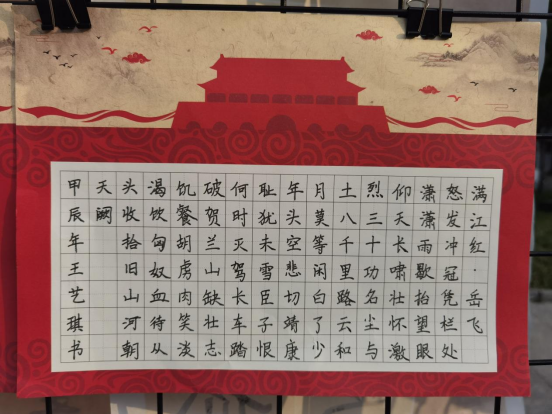 满江红·岳飞
怒发冲冠凭栏处
潇潇雨歇抬望眼
仰天长啸壮怀激
烈三十功名尘与
土八千里路云和
月莫等闲白了少
年头空悲切靖康
耻犹未雪臣子恨
何时灭驾长车踏
破贺兰山缺壮志
饥餐胡虏肉笑淡
渴饮匈奴血待从
头收拾旧山河朝
天阙
甲辰年王艺琪书